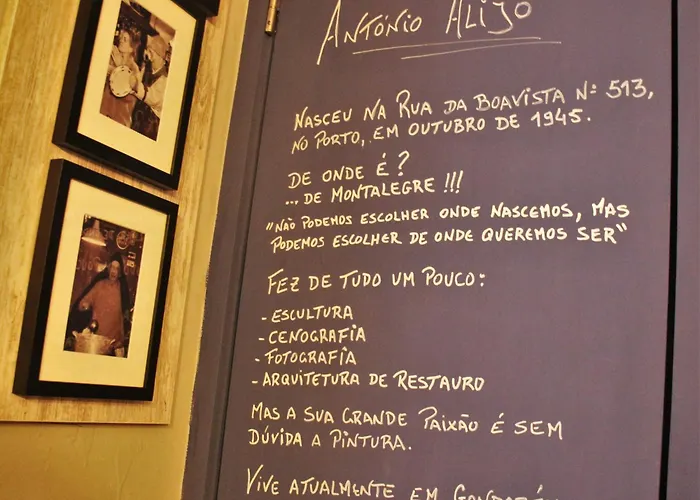 António Alijo
Nasceu na Rua da Boavista Nº 513,
no Porto, em outubro de 1945.
De onde é?
... De Montalegre!!!
"Não podemos escolher onde nascemos, mas
podemos escolher de onde queremos ser"
Fez de tudo um pouco:
- Escultura
- Cenografia
- Fotografia
- Arquitetura de Restauro
Mas a sua grande paixão é sem
dúvida a pintura.
Vive atualmente em